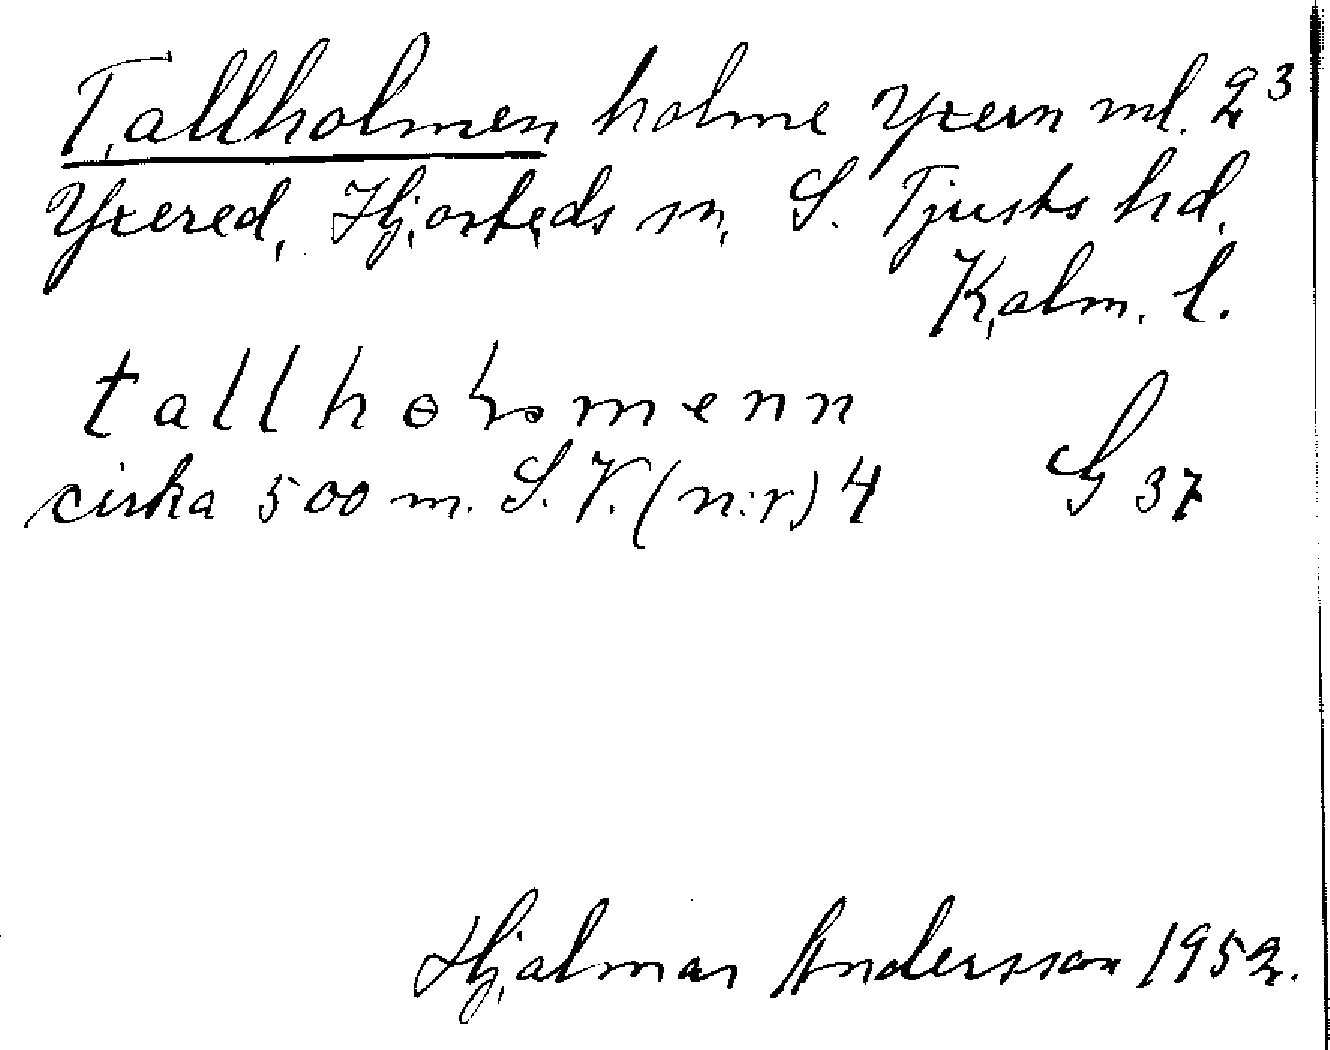 Tallholmen holme Yxern ml. 2³
Yxered, Hjorteds sn, S. Tjusts hd,
Kalm. l.
tallholmenn
cirka 500 m. S.V. (n:r) 4 G 37
Hjalmar Andersson 1952.